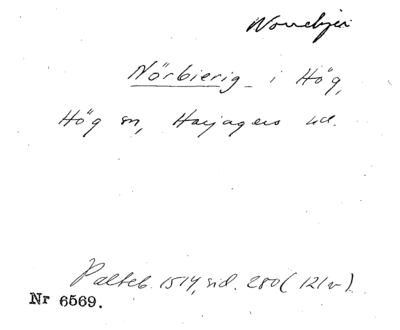 Norrebjer
Nörbierig i Hög,
Hög sn, Harjagers hd.
Palteb. 1514, sid. 280 (121v).
Nr 6569.